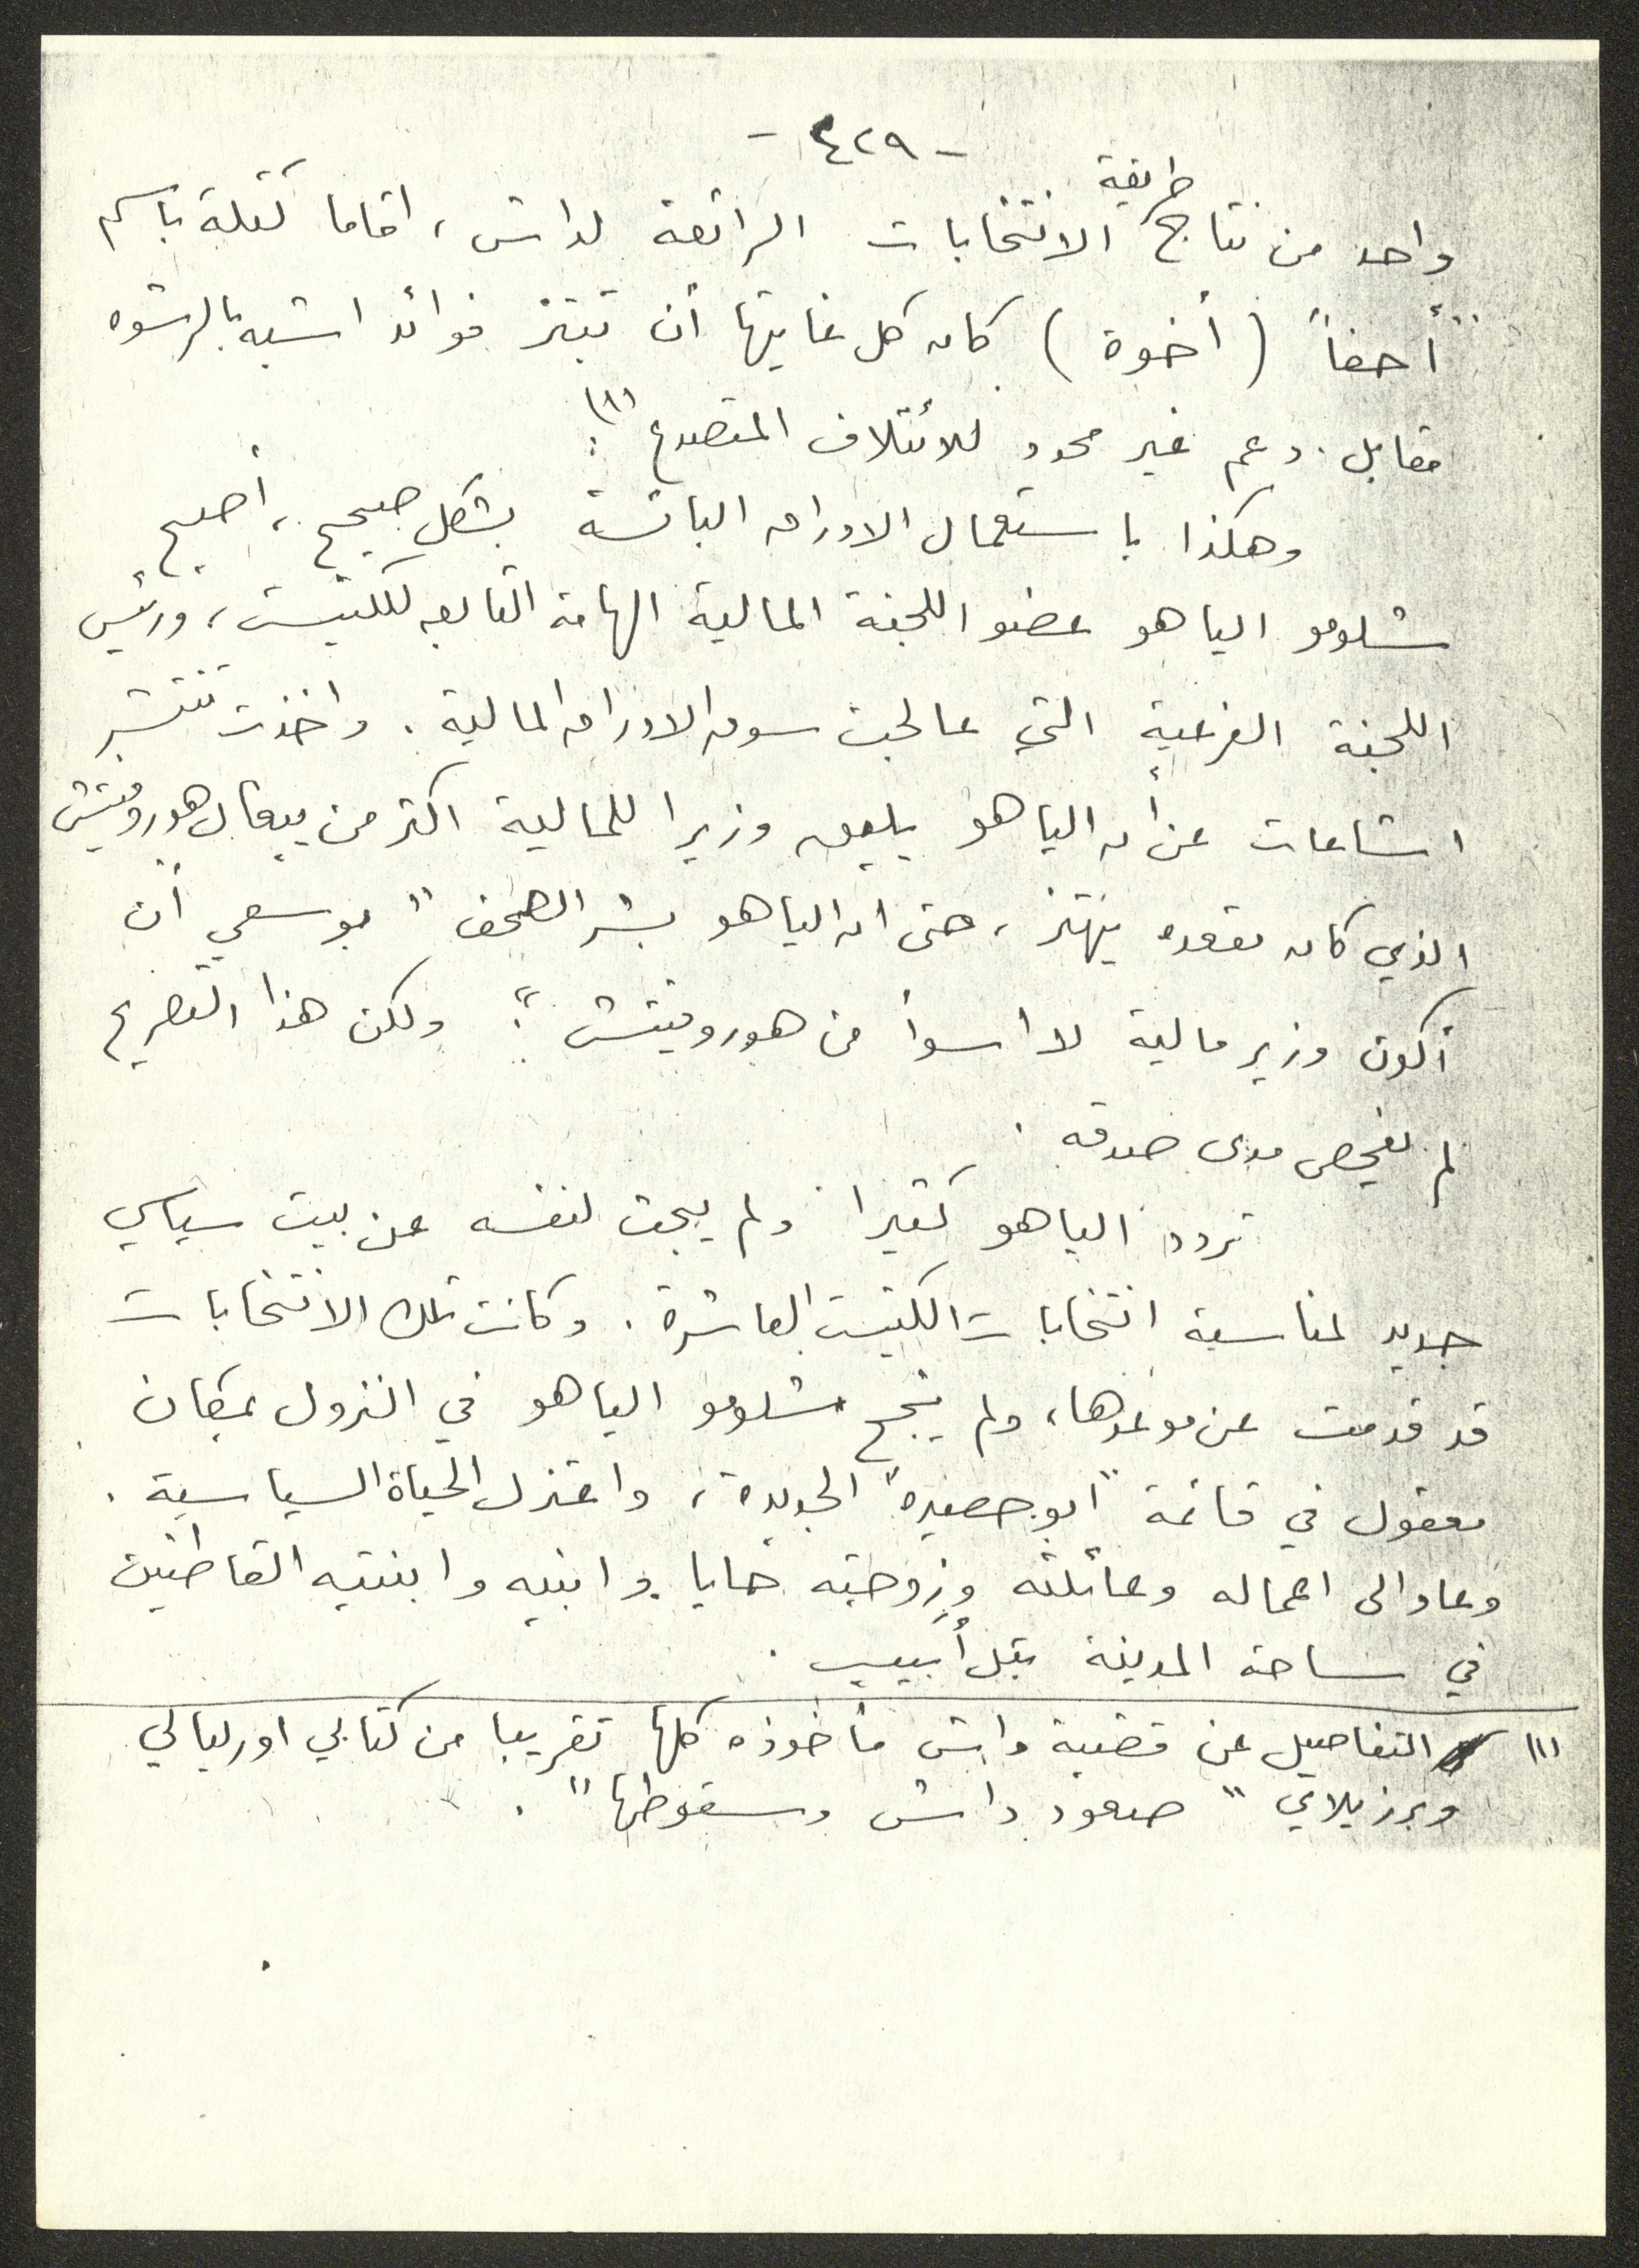 - ٤٢٩ -
طريقة
واحد من نتاج الانتخابات الرائعة لداش ، اقاما كتلة باسم
"أحفا" ( أخوة ) كان كل غايتها أن تبتز فوائد اشبه بالرشوه
مقابل دعم غير محدود للائتلاف المتصدع (١) .
وهكذا باستعمال الاوراق البائسة بشكل صحيح ، أصبح
شلومو الياهو عضو اللجنة المالية الهامة التابعه للكنيست ، ورئيس
اللجنة الفرعية التي عالجت سوق الاوراق المالية . واخذت تنتشر
اشاعات عن أن الياهو يليق وزيرا للمالية اكثر من يغال هوروفيتش
الذي كان مقعده يهتز ، حتى ان الياهو بشر الصحف " بوسعي أن
أكون وزير مالية لا أسوأ من هوروفيتش " . ولكن هذا التصريح
لم يفحص مدى صدقه .
تردد الياهو كثيرا ولم يبحث لنفسه عن بيت سياسي
جديد لمناسبة انتخابات الكنيست العاشرة . وكانت تلك الانتخابات
قد قدمت عن موعدها ، ولم ينجح شلومو الياهو في النزول بمكان
معقول في قائمة "ابو حصيره" الجديدة ، واعتزل الحياة السياسية .
وعاد الى اعماله وعائلته وزوجته حايا وابنيه وابنتيه القاطنين
في ساحة المدينة بتل أبيب .
(١) التفاصيل عن قضية داش مأخوذه كلها تقريبا من كتابي اورليالي
وبرزيلاي " صعود داش وسقوطها " .